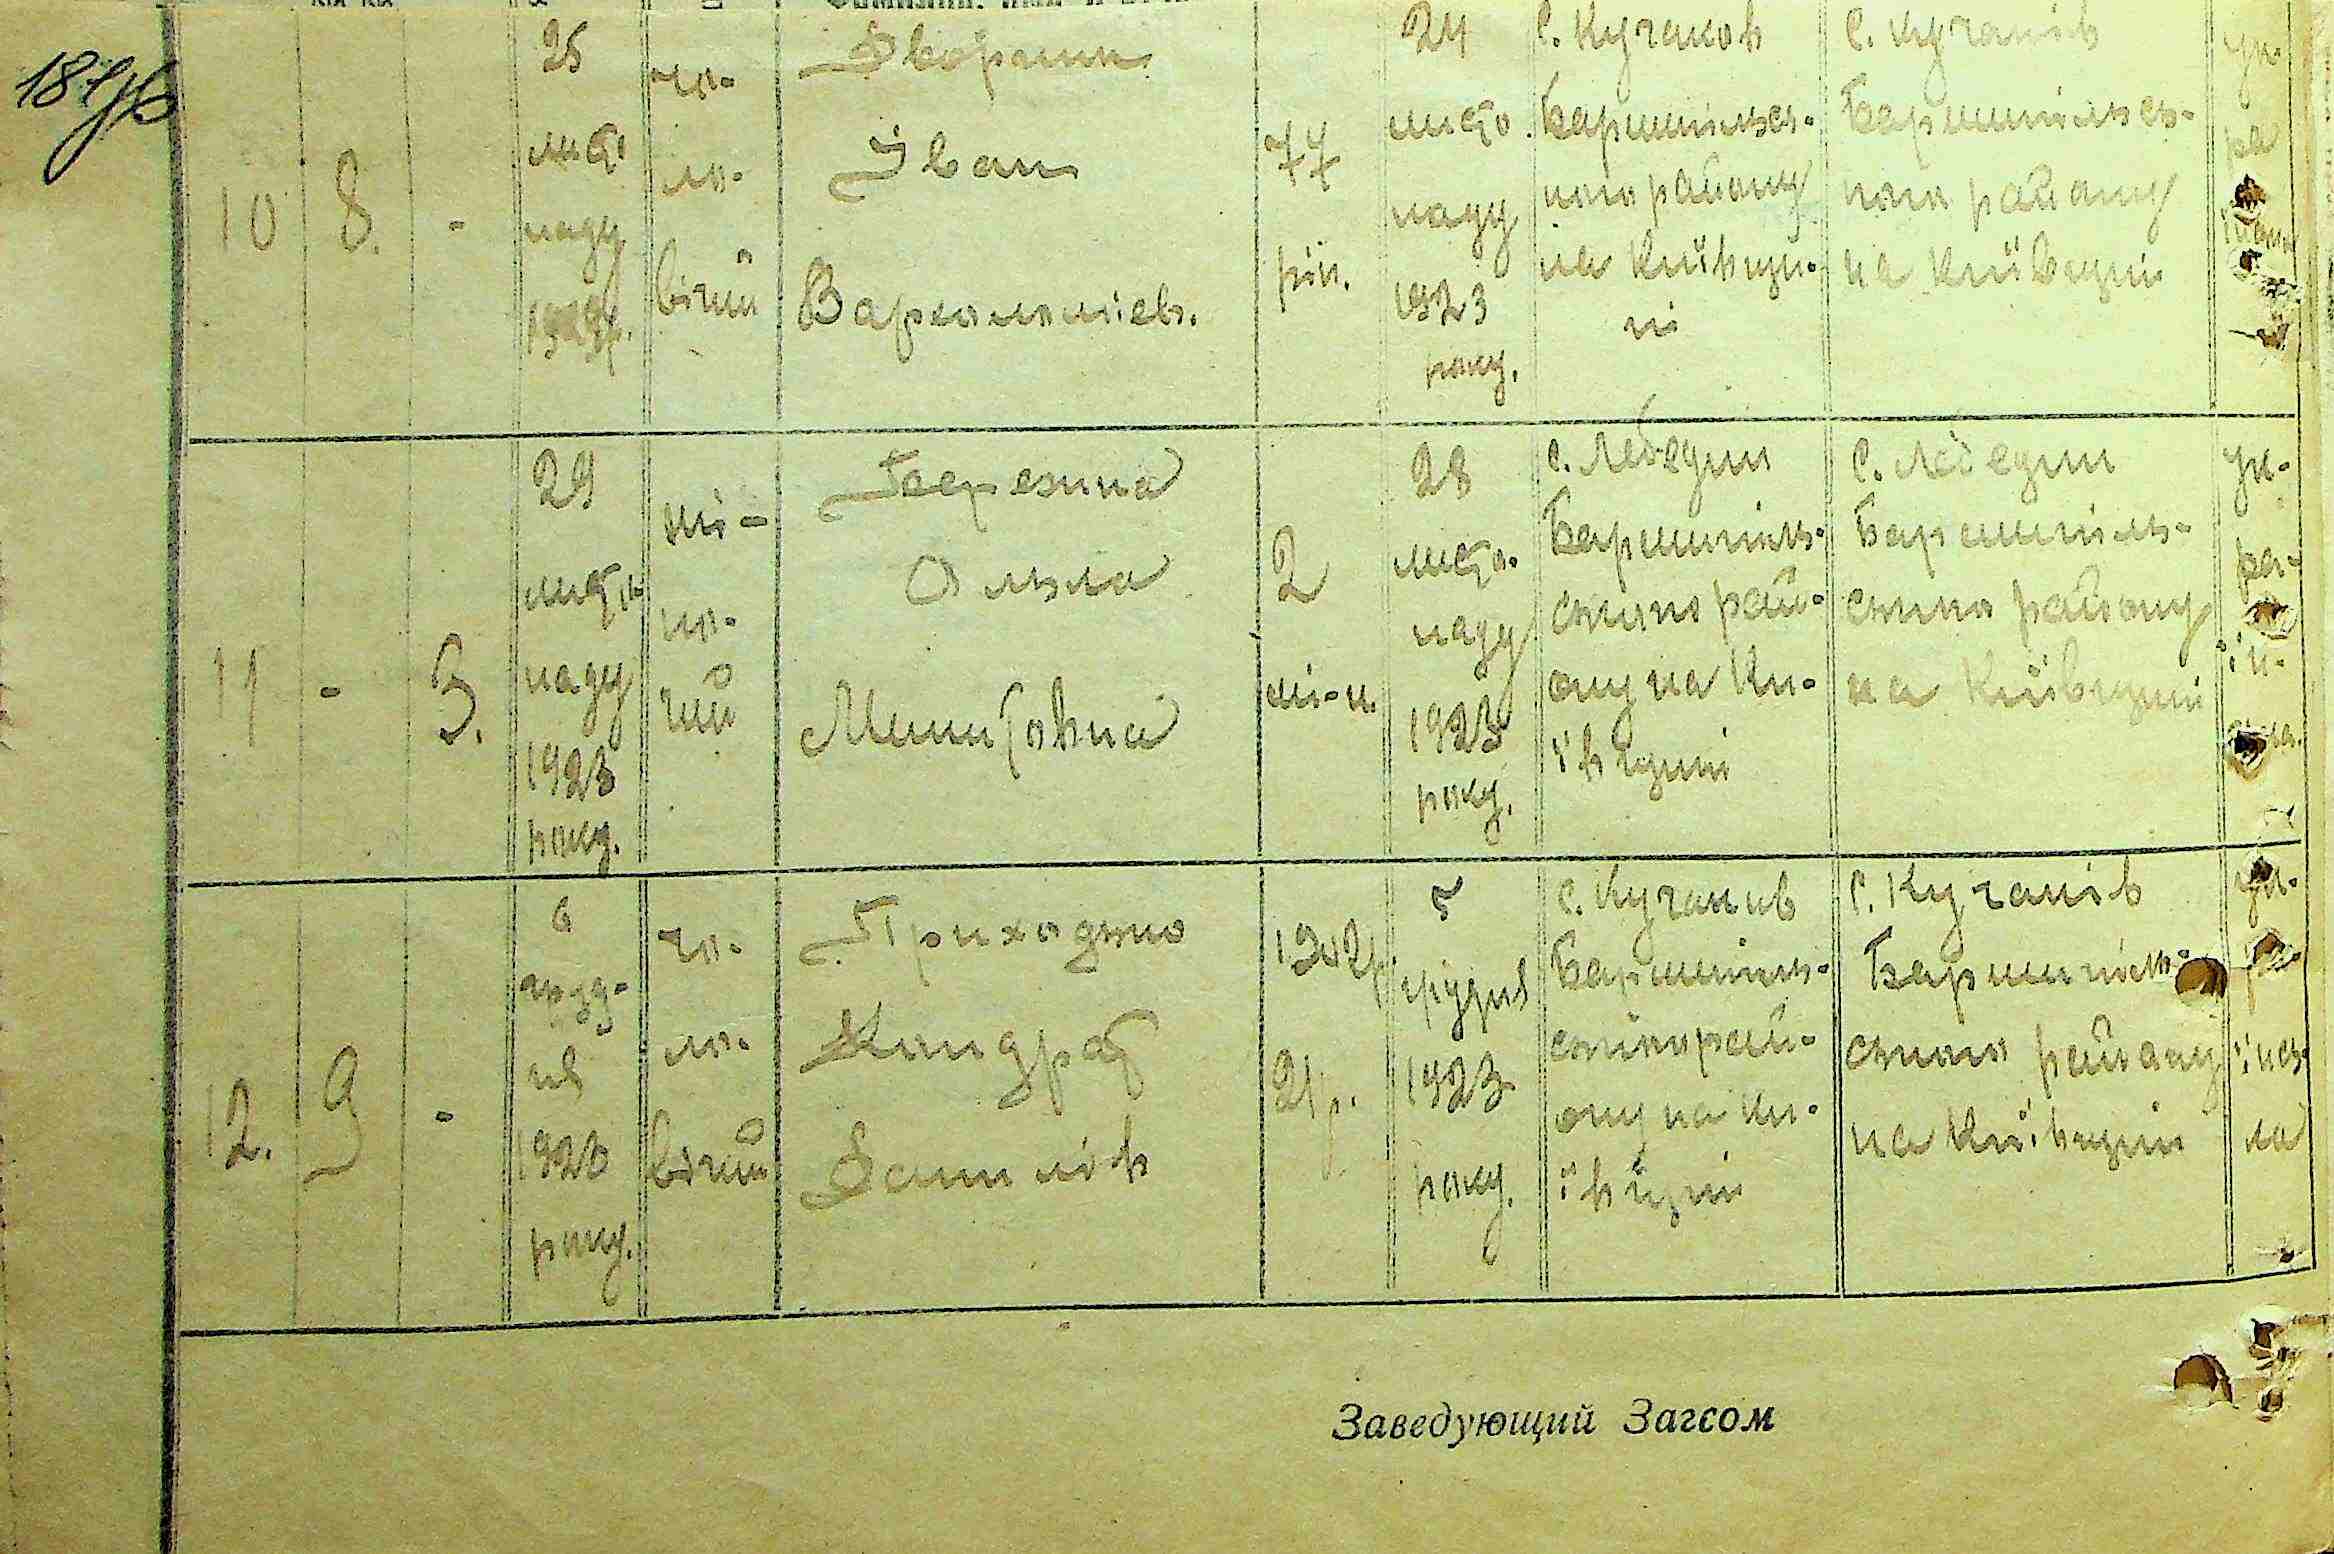 10
8.
-
25
листо
паду
1923р.
чо-
ло-
вічий
Дворник
Іван
Варфоломіїв.
77
рік.
24
листо
паду
1923
року.
с. Кучаков
Баришпільсь-
кого району
на Київщи-
ні
с. Кучаків
Баришпільсь-
кого району
на Київщині
ук
ра
11
-
3.
29
листо
паду
1923
року.
жі-
но-
чий
Березина
Ольга
Мини
2
міс-ц.
28
листо-
паду
1923
року.
с. Лебедин
Баришпіль-
ського рай-
ону на Ки-
ївщині
с. Лебедин
Баришпіль-
ського району
на Київщині
ук-
ра-
їн-
12.
9
-
6
груд-
ня
1923
року.
чо-
ло-
вічий
Приходько
Кондрат
Данилів
1902р.
21р.
5
грудня
1923
року.
с. Кучаків
Баришпіль-
ського рай-
ону на Ки-
ївщині
с. Кучаків
Баришпіль-
ського району
на Київщині
ук-
ра-
їнсь
ка
Заведующий Загсом